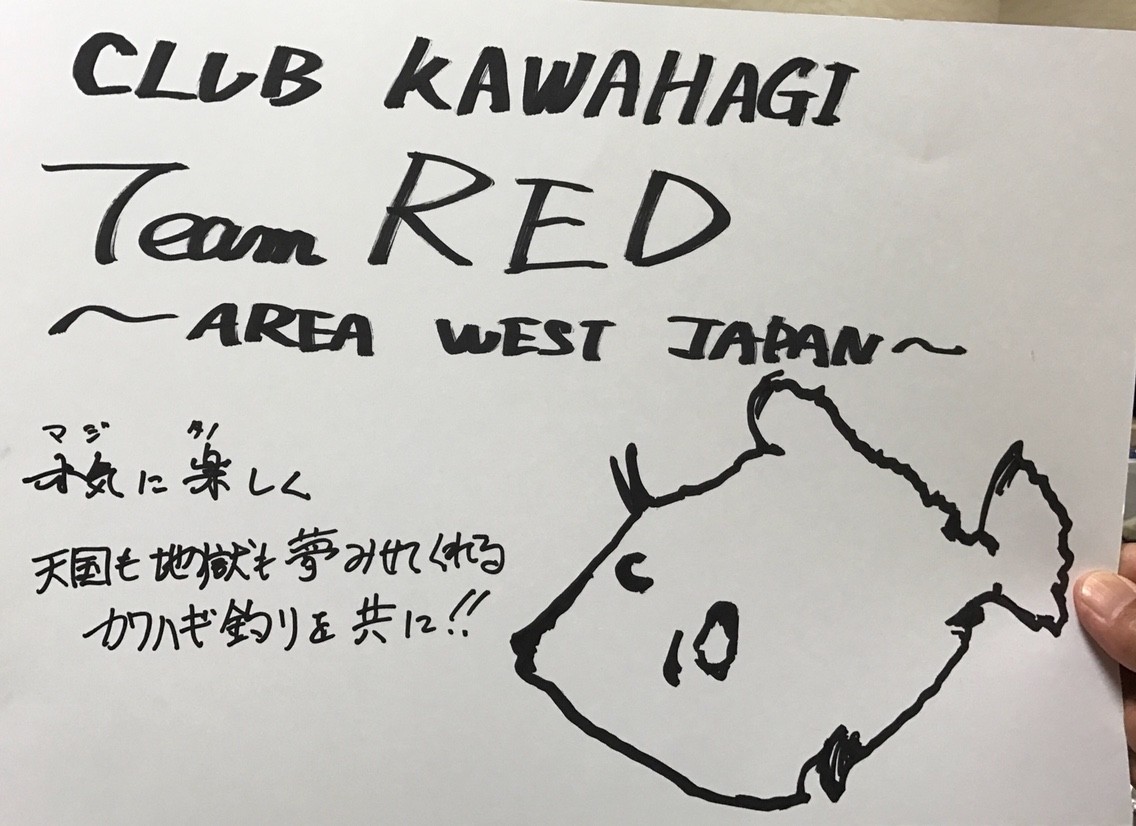 CLUB KAWAHAGI
Team RED
～AREA WEST JAPAN～
マジ タノ
本気に楽しく
天国も地獄も夢みせてくれる
カワハギ釣りを共に!!